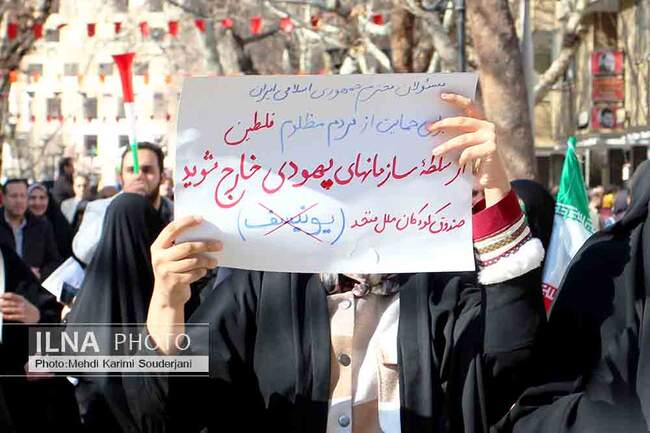 مسئولان محترم جمهوری اسلامی ایران
برای حمایت از مردم مظلوم فلسطین
از سلطهٔ سازمانهای یهودی خارج شوید
صندوق کودکان ملل متحد (یونیسف)
ILNA PHOTO
Photo:Mehdi Karimi Souderjani